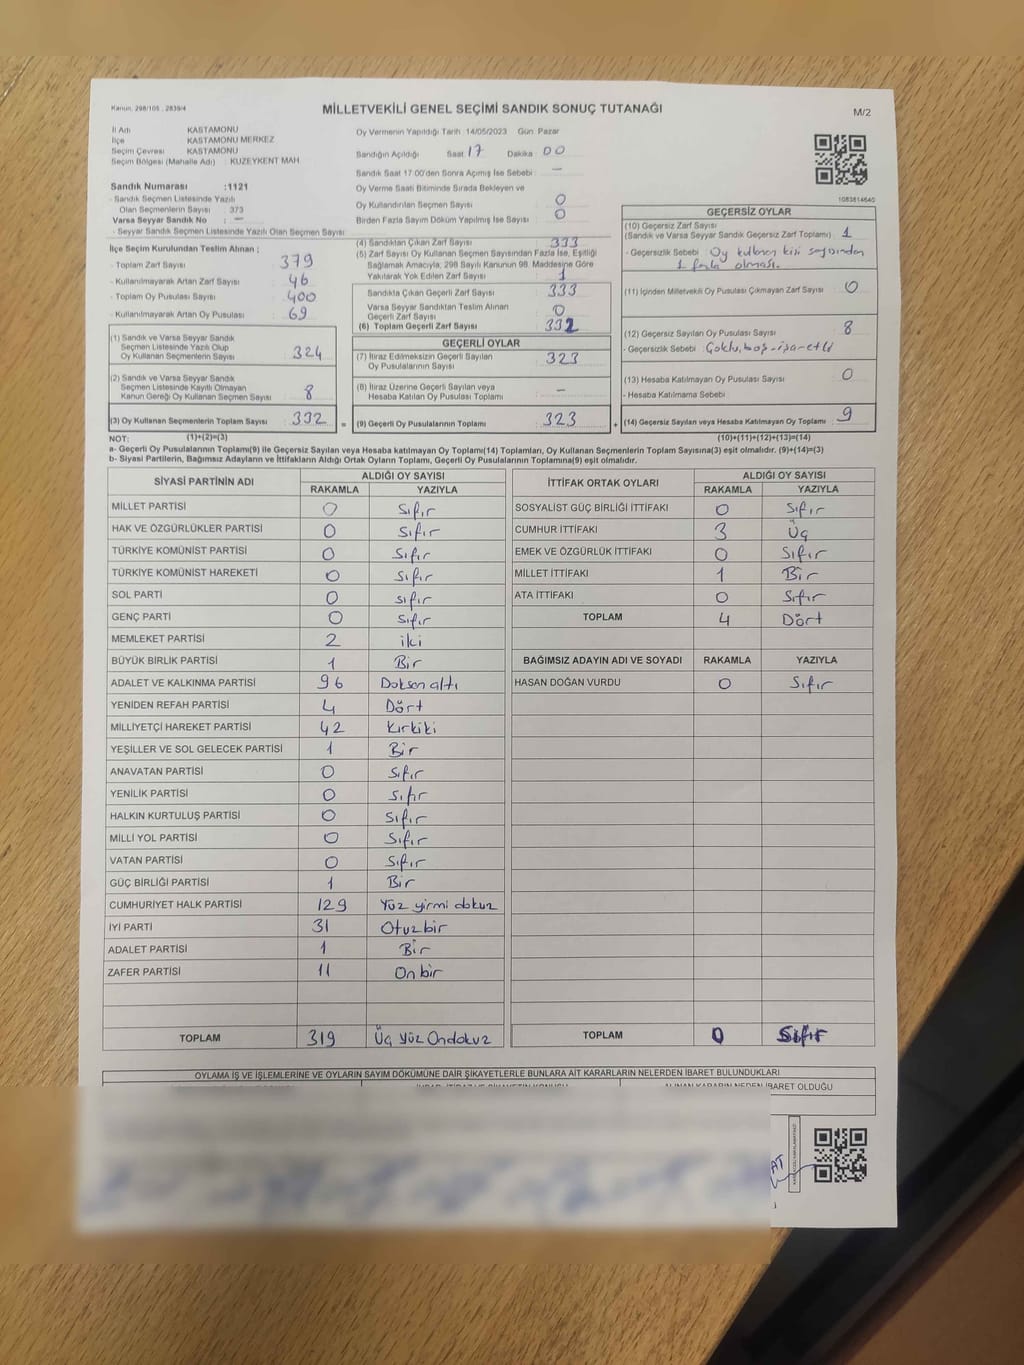 Kanun, 298/105 , 2839/4
MİLLETVEKİLİ GENEL SEÇİMİ SANDIK SONUÇ TUTANAĞI
M/2
İl Adı KASTAMONU
İlçe KASTAMONU MERKEZ
Seçim Çevresi KASTAMONU
Seçim Bölgesi (Mahalle Adı) : KUZEYKENT MAH
Oy Vermenin Yapıldığı Tarih 14/05/2023 Gün Pazar
Sandığın Açıldığı Saat 17 Dakika 00
Sandık Saat 17:00'den Sonra Açılmış İse Sebebi : —
Oy Verme Saati Bitiminde Sırada Bekleyen ve
Oy Kullandırılan Seçmen Sayısı : 0
Birden Fazla Sayım Döküm Yapılmış İse Sayısı : 0
1083814640
Sandık Numarası :1121
- Sandık Seçmen Listesinde Yazılı
Olan Seçmenlerin Sayısı : 373
Varsa Seyyar Sandık No : —
- Seyyar Sandık Seçmen Listesinde Yazılı Olan Seçmen Sayısı
İlçe Seçim Kurulundan Teslim Alınan ;
- Toplam Zarf Sayısı : 379
- Kullanılmayarak Artan Zarf Sayısı : 46
- Toplam Oy Pusulası Sayısı : 400
- Kullanılmayarak Artan Oy Pusulası : 69
(1) Sandık ve Varsa Seyyar Sandık
Seçmen Listesinde Yazılı Olup
Oy Kullanan Seçmenlerin Sayısı : 324
(2) Sandık ve Varsa Seyyar Sandık
Seçmen Listesinde Kayıtlı Olmayan
Kanun Gereği Oy Kullanan Seçmen Sayısı : 8
(3) Oy Kullanan Seçmenlerin Toplam Sayısı : 332
(4) Sandıktan Çıkan Zarf Sayısı : 333
(5) Zarf Sayısı Oy Kullanan Seçmen Sayısından Fazla İse, Eşitliği
Sağlamak Amacıyla, 298 Sayılı Kanunun 98. Maddesine Göre
Yakılarak Yok Edilen Zarf Sayısı : 1
Sandıkta Çıkan Geçerli Zarf Sayısı : 333
Varsa Seyyar Sandıktan Teslim Alınan
Geçerli Zarf Sayısı : 0
(6) Toplam Geçerli Zarf Sayısı : 332
GEÇERLİ OYLAR
(7) İtiraz Edilmeksizin Geçerli Sayılan
Oy Pusulalarının Sayısı : 323
(8) İtiraz Üzerine Geçerli Sayılan veya
Hesaba Katılan Oy Pusulası Toplamı : —
= (9) Geçerli Oy Pusulalarının Toplamı : 323
GEÇERSİZ OYLAR
(10) Geçersiz Zarf Sayısı
(Sandık ve Varsa Seyyar Sandık Geçersiz Zarf Toplamı) : 1
- Geçersizlik Sebebi : Oy kullanan kişi sayısından
1 fazla olması.
(11) İçinden Milletvekili Oy Pusulası Çıkmayan Zarf Sayısı : 0
(12) Geçersiz Sayılan Oy Pusulası Sayısı : 8
- Geçersizlik Sebebi : Çoklu, boş-işaretli
(13) Hesaba Katılmayan Oy Pusulası Sayısı : 0
- Hesaba Katılmama Sebebi :
+ (14) Geçersiz Sayılan veya Hesaba Katılmayan Oy Toplamı : 9
NOT: (1)+(2)=(3) (10)+(11)+(12)+(13)=(14)
a- Geçerli Oy Pusulalarının Toplamı(9) ile Geçersiz Sayılan veya Hesaba katılmayan Oy Toplamı(14) Toplamları, Oy Kullanan Seçmenlerin Toplam Sayısına(3) eşit olmalıdır. (9)+(14)=(3)
b- Siyasi Partilerin, Bağımsız Adayların ve İttifakların Aldığı Ortak Oyların Toplamı, Geçerli Oy Pusulalarının Toplamına(9) eşit olmalıdır.
SİYASİ PARTİNİN ADI ALDIĞI OY SAYISI
RAKAMLA YAZIYLA
MİLLET PARTİSİ 0 Sıfır
HAK VE ÖZGÜRLÜKLER PARTİSİ 0 Sıfır
TÜRKİYE KOMÜNİST PARTİSİ 0 Sıfır
TÜRKİYE KOMÜNİST HAREKETİ 0 Sıfır
SOL PARTİ 0 Sıfır
GENÇ PARTİ 0 Sıfır
MEMLEKET PARTİSİ 2 iki
BÜYÜK BİRLİK PARTİSİ 1 Bir
ADALET VE KALKINMA PARTİSİ 96 Doksan altı
YENİDEN REFAH PARTİSİ 4 Dört
MİLLİYETÇİ HAREKET PARTİSİ 42 Kırkiki
YEŞİLLER VE SOL GELECEK PARTİSİ 1 Bir
ANAVATAN PARTİSİ 0 Sıfır
YENİLİK PARTİSİ 0 Sıfır
HALKIN KURTULUŞ PARTİSİ 0 Sıfır
MİLLİ YOL PARTİSİ 0 Sıfır
VATAN PARTİSİ 0 Sıfır
GÜÇ BİRLİĞİ PARTİSİ 1 Bir
CUMHURİYET HALK PARTİSİ 129 Yüz yirmi dokuz
İYİ PARTİ 31 Otuzbir
ADALET PARTİSİ 1 Bir
ZAFER PARTİSİ 11 On bir
TOPLAM 319 Üç Yüz Ondokuz
İTTİFAK ORTAK OYLARI ALDIĞI OY SAYISI
RAKAMLA YAZIYLA
SOSYALİST GÜÇ BİRLİĞİ İTTİFAKI 0 Sıfır
CUMHUR İTTİFAKI 3 Üç
EMEK VE ÖZGÜRLÜK İTTİFAKI 0 Sıfır
MİLLET İTTİFAKI 1 Bir
ATA İTTİFAKI 0 Sıfır
TOPLAM 4 Dört
BAĞIMSIZ ADAYIN ADI VE SOYADI RAKAMLA YAZIYLA
HASAN DOĞAN VURDU 0 Sıfır
TOPLAM 0 Sıfır
OYLAMA İŞ VE İŞLEMLERİNE VE OYLARIN SAYIM DÖKÜMÜNE DAİR ŞİKAYETLERLE BUNLARA AİT KARARLARIN NELERDEN İBARET BULUNDUKLARI
ALINAN KARARIN NEDEN İBARET OLDUĞU